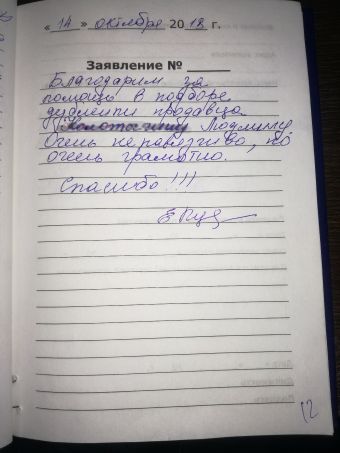 « 14 » октября 2018 г.
Заявление №
Благодарим за
помощь в подборе
дубленки продавца
Людмилу,
Очень не навязчиво, но
очень грамотно.
Спасибо!!!
12